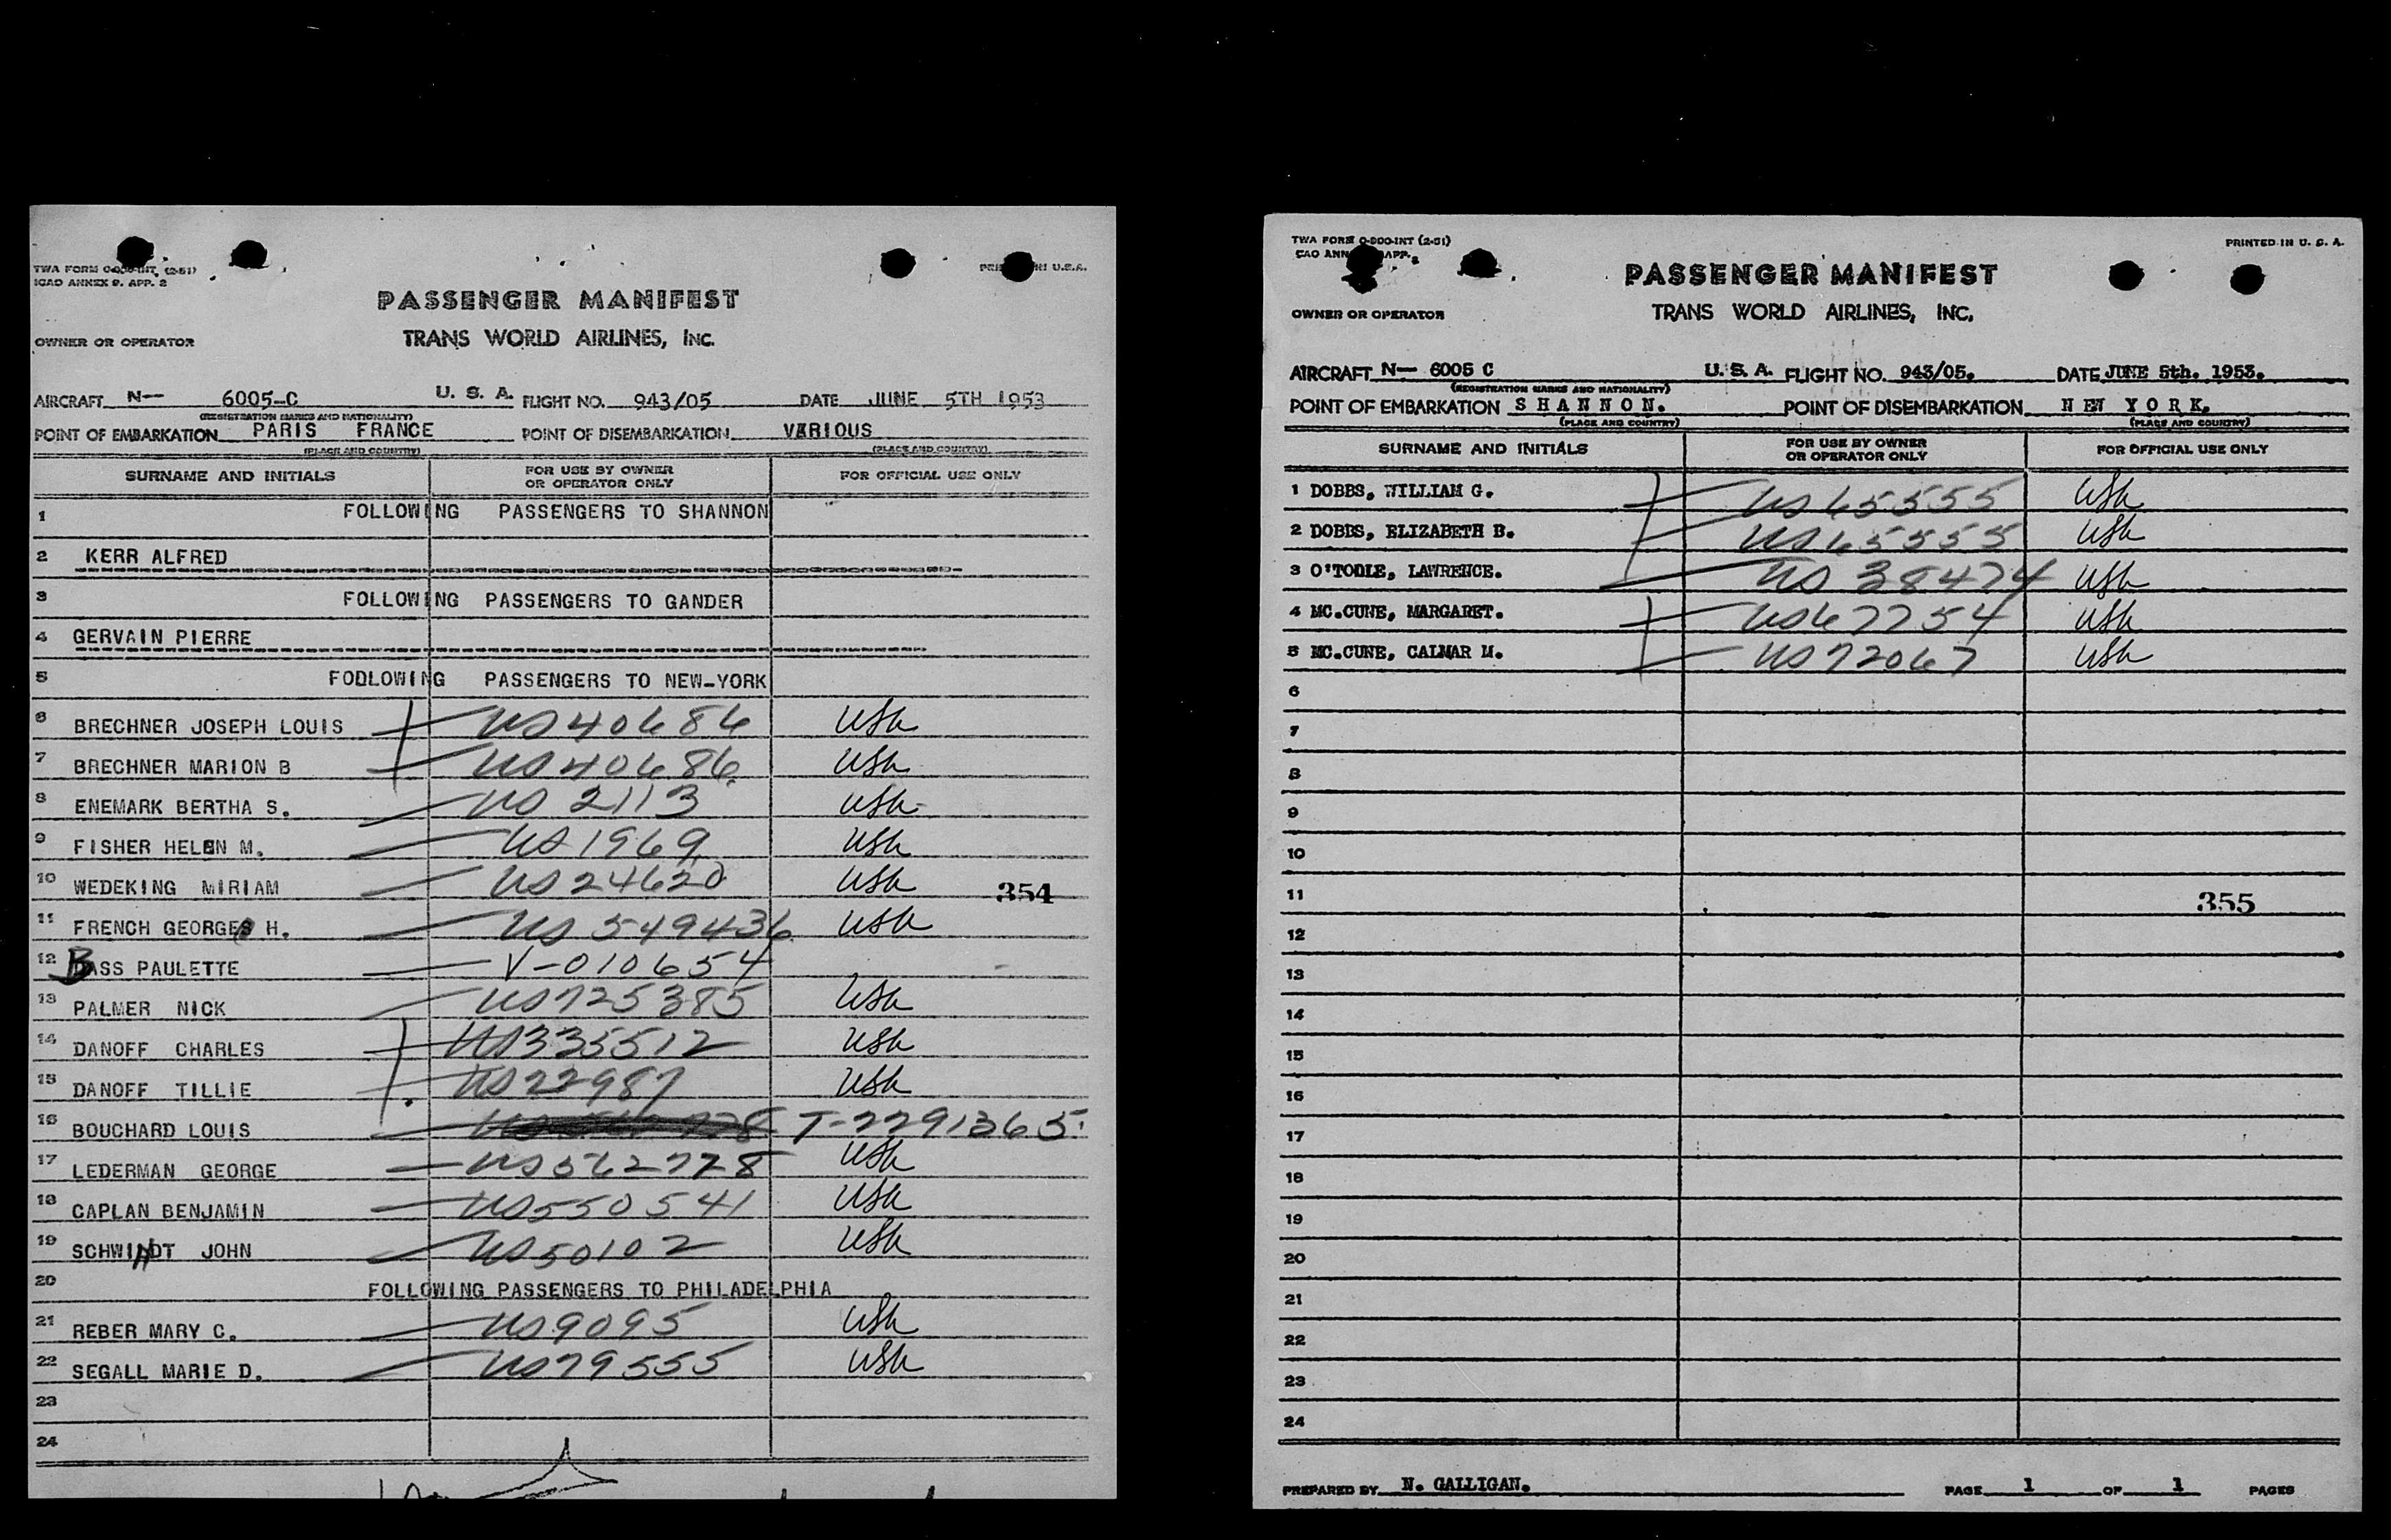 TWA FORM O-800-INT (2-51)
ICAO ANNEX 9. APP. 2
U.S.A.
PASSENGER MANIFEST
TRANS WORLD AIRLINES, INC.
OWNER OR OPERATOR
AIRCRAFT N— 6005-C U. S. A. FLIGHT NO. 943/05 DATE JUNE 5TH 1953
(REGISTRATION MARKS AND NATIONALITY)
POINT OF EMBARKATION PARIS FRANCE POINT OF DISEMBARKATION VARIOUS
(PLACE AND COUNTRY) (PLACE AND COUNTRY)
SURNAME AND INITIALS FOR USE BY OWNER OR OPERATOR ONLY FOR OFFICIAL USE ONLY
1 FOLLOWING PASSENGERS TO SHANNON
2 KERR ALFRED
3 FOLLOWING PASSENGERS TO GANDER
4 GERVAIN PIERRE
5 FODLOWING PASSENGERS TO NEW-YORK
6 BRECHNER JOSEPH LOUIS US 40686 USA
7 BRECHNER MARION B US 40686 USA
8 ENEMARK BERTHA S. US 2113 USA
9 FISHER HELEN M. US 1969 USA
10 WEDEKING MIRIAM US 24620 USA
354
11 FRENCH GEORGE H. US 549436 USA
12 BASS PAULETTE V-010654
13 PALMER NICK US 725385 USA
14 DANOFF CHARLES US 335512 USA
15 DANOFF TILLIE US 22987 USA
16 BOUCHARD LOUIS T-2291365
17 LEDERMAN GEORGE US 562778 USA
18 CAPLAN BENJAMIN US 550541 USA
19 SCHWINDT JOHN US 50102 USA
20 FOLLOWING PASSENGERS TO PHILADELPHIA
21 REBER MARY C. US 9095 USA
22 SEGALL MARIE D. US 79555 USA
23
24
TWA FORM O-800-INT (2-51)
CAO ANN APP.
PRINTED IN U. S. A.
PASSENGER MANIFEST
TRANS WORLD AIRLINES, INC.
OWNER OR OPERATOR
AIRCRAFT N— 6005 C U. S. A. FLIGHT NO. 943/05. DATE JUNE 5th. 1953.
(REGISTRATION MARKS AND NATIONALITY)
POINT OF EMBARKATION SHANNON. POINT OF DISEMBARKATION NEW YORK.
(PLACE AND COUNTRY) (PLACE AND COUNTRY)
SURNAME AND INITIALS FOR USE BY OWNER OR OPERATOR ONLY FOR OFFICIAL USE ONLY
1 DOBBS, WILLIAM G. US 65555 USA
2 DOBBS, ELIZABETH B. US 65555 USA
3 O'TOOLE, LAWRENCE. US 38474 USA
4 MC.CUNE, MARGARET. US 67754 USA
5 MC.CUNE, CALMAR M. US 72067 USA
6
7
8
9
10
11
355
12
13
14
15
16
17
18
19
20
21
22
23
24
PREPARED BY N. GALLIGAN. PAGE 1 OF 1 PAGES